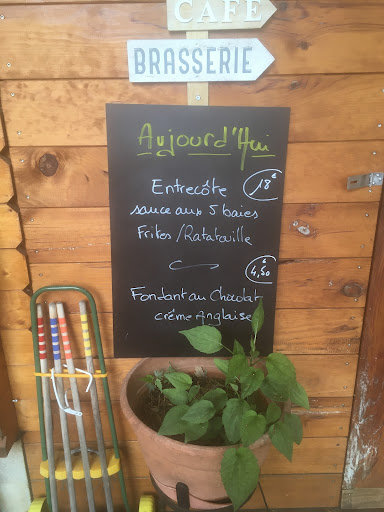 CAFÉ
BRASSERIE
Aujourd'Hui
Entrecôte 18€
sauce aux 5 baies
Frites / Ratatouille
4,50€
Fondant au Chocolat
créme Anglaise